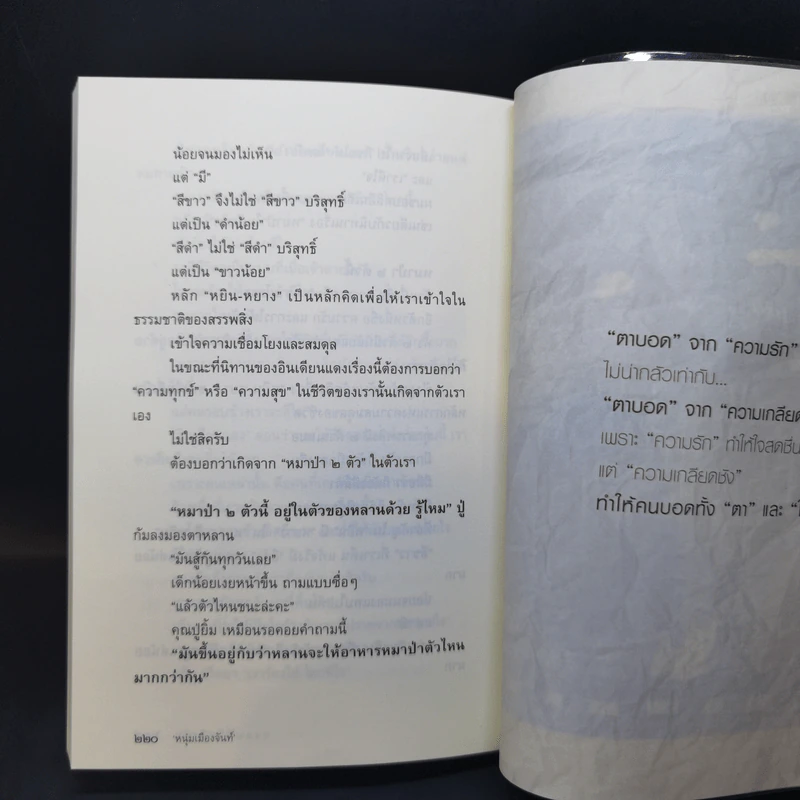 น้อยจนมองไม่เห็น
แต่ "มี"
"สีขาว" จึงไม่ใช่ "สีขาว" บริสุทธิ์
แต่เป็น "ดำน้อย"
"สีดำ" ไม่ใช่ "สีดำ" บริสุทธิ์
แต่เป็น "ขาวน้อย"
หลัก "หยิน-หยาง" เป็นหลักคิดเพื่อให้เราเข้าใจใน
ธรรมชาติของสรรพสิ่ง
เข้าใจความเชื่อมโยงและสมดุล
ในขณะที่นิทานของอินเดียนแดงเรื่องนี้ต้องการบอกว่า
"ความทุกข์" หรือ "ความสุข" ในชีวิตของเรานั้นเกิดจากตัวเรา
เอง
ไม่ใช่สิครับ
ต้องบอกว่าเกิดจาก "หมาป่า ๒ ตัว" ในตัวเรา
"หมาป่า ๒ ตัวนี้ อยู่ในตัวของหลานด้วย รู้ไหม" ปู่
ก้มลงมองตาหลาน
"มันสู้กันทุกวันเลย"
เด็กน้อยเงยหน้าขึ้น ถามแบบซื่อๆ
"แล้วตัวไหนชนะล่ะคะ"
คุณปู่ยิ้ม เหมือนรอคอยคำถามนี้
"มันขึ้นอยู่กับว่าหลานจะให้อาหารหมาป่าตัวไหน
มากกว่ากัน"
๒๒๐ หนุ่มเมืองจันท์
"ตาบอด" จาก "ความรัก"
ไม่น่ากลัวเท่ากับ...
"ตาบอด" จาก "ความเกลียด
เพราะ "ความรัก" ทำให้ใจสดชื่น
แต่ "ความเกลียดชัง"
ทำให้คนบอดทั้ง "ตา" และ